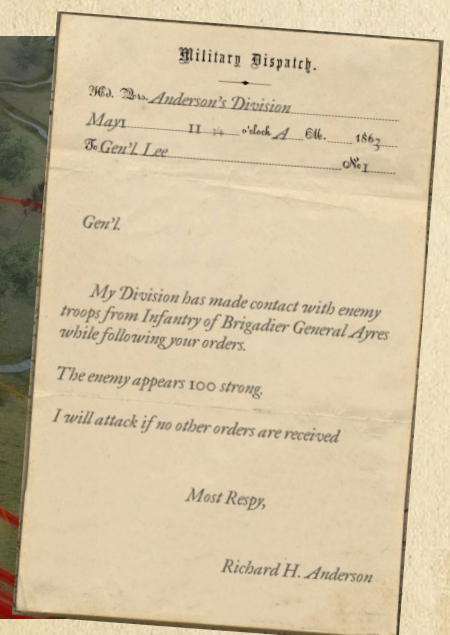 Military Dispatch.
Hd. Qrs. Anderson's Division
May 1 11 o'clock A M. 1863
To Gen'l. Lee No 1
Gen'l.
My Division has made contact with enemy
troops from Infantry of Brigadier General Ayres
while following your orders.
The enemy appears 100 strong.
I will attack if no other orders are received
Most Respy,
Richard H. Anderson